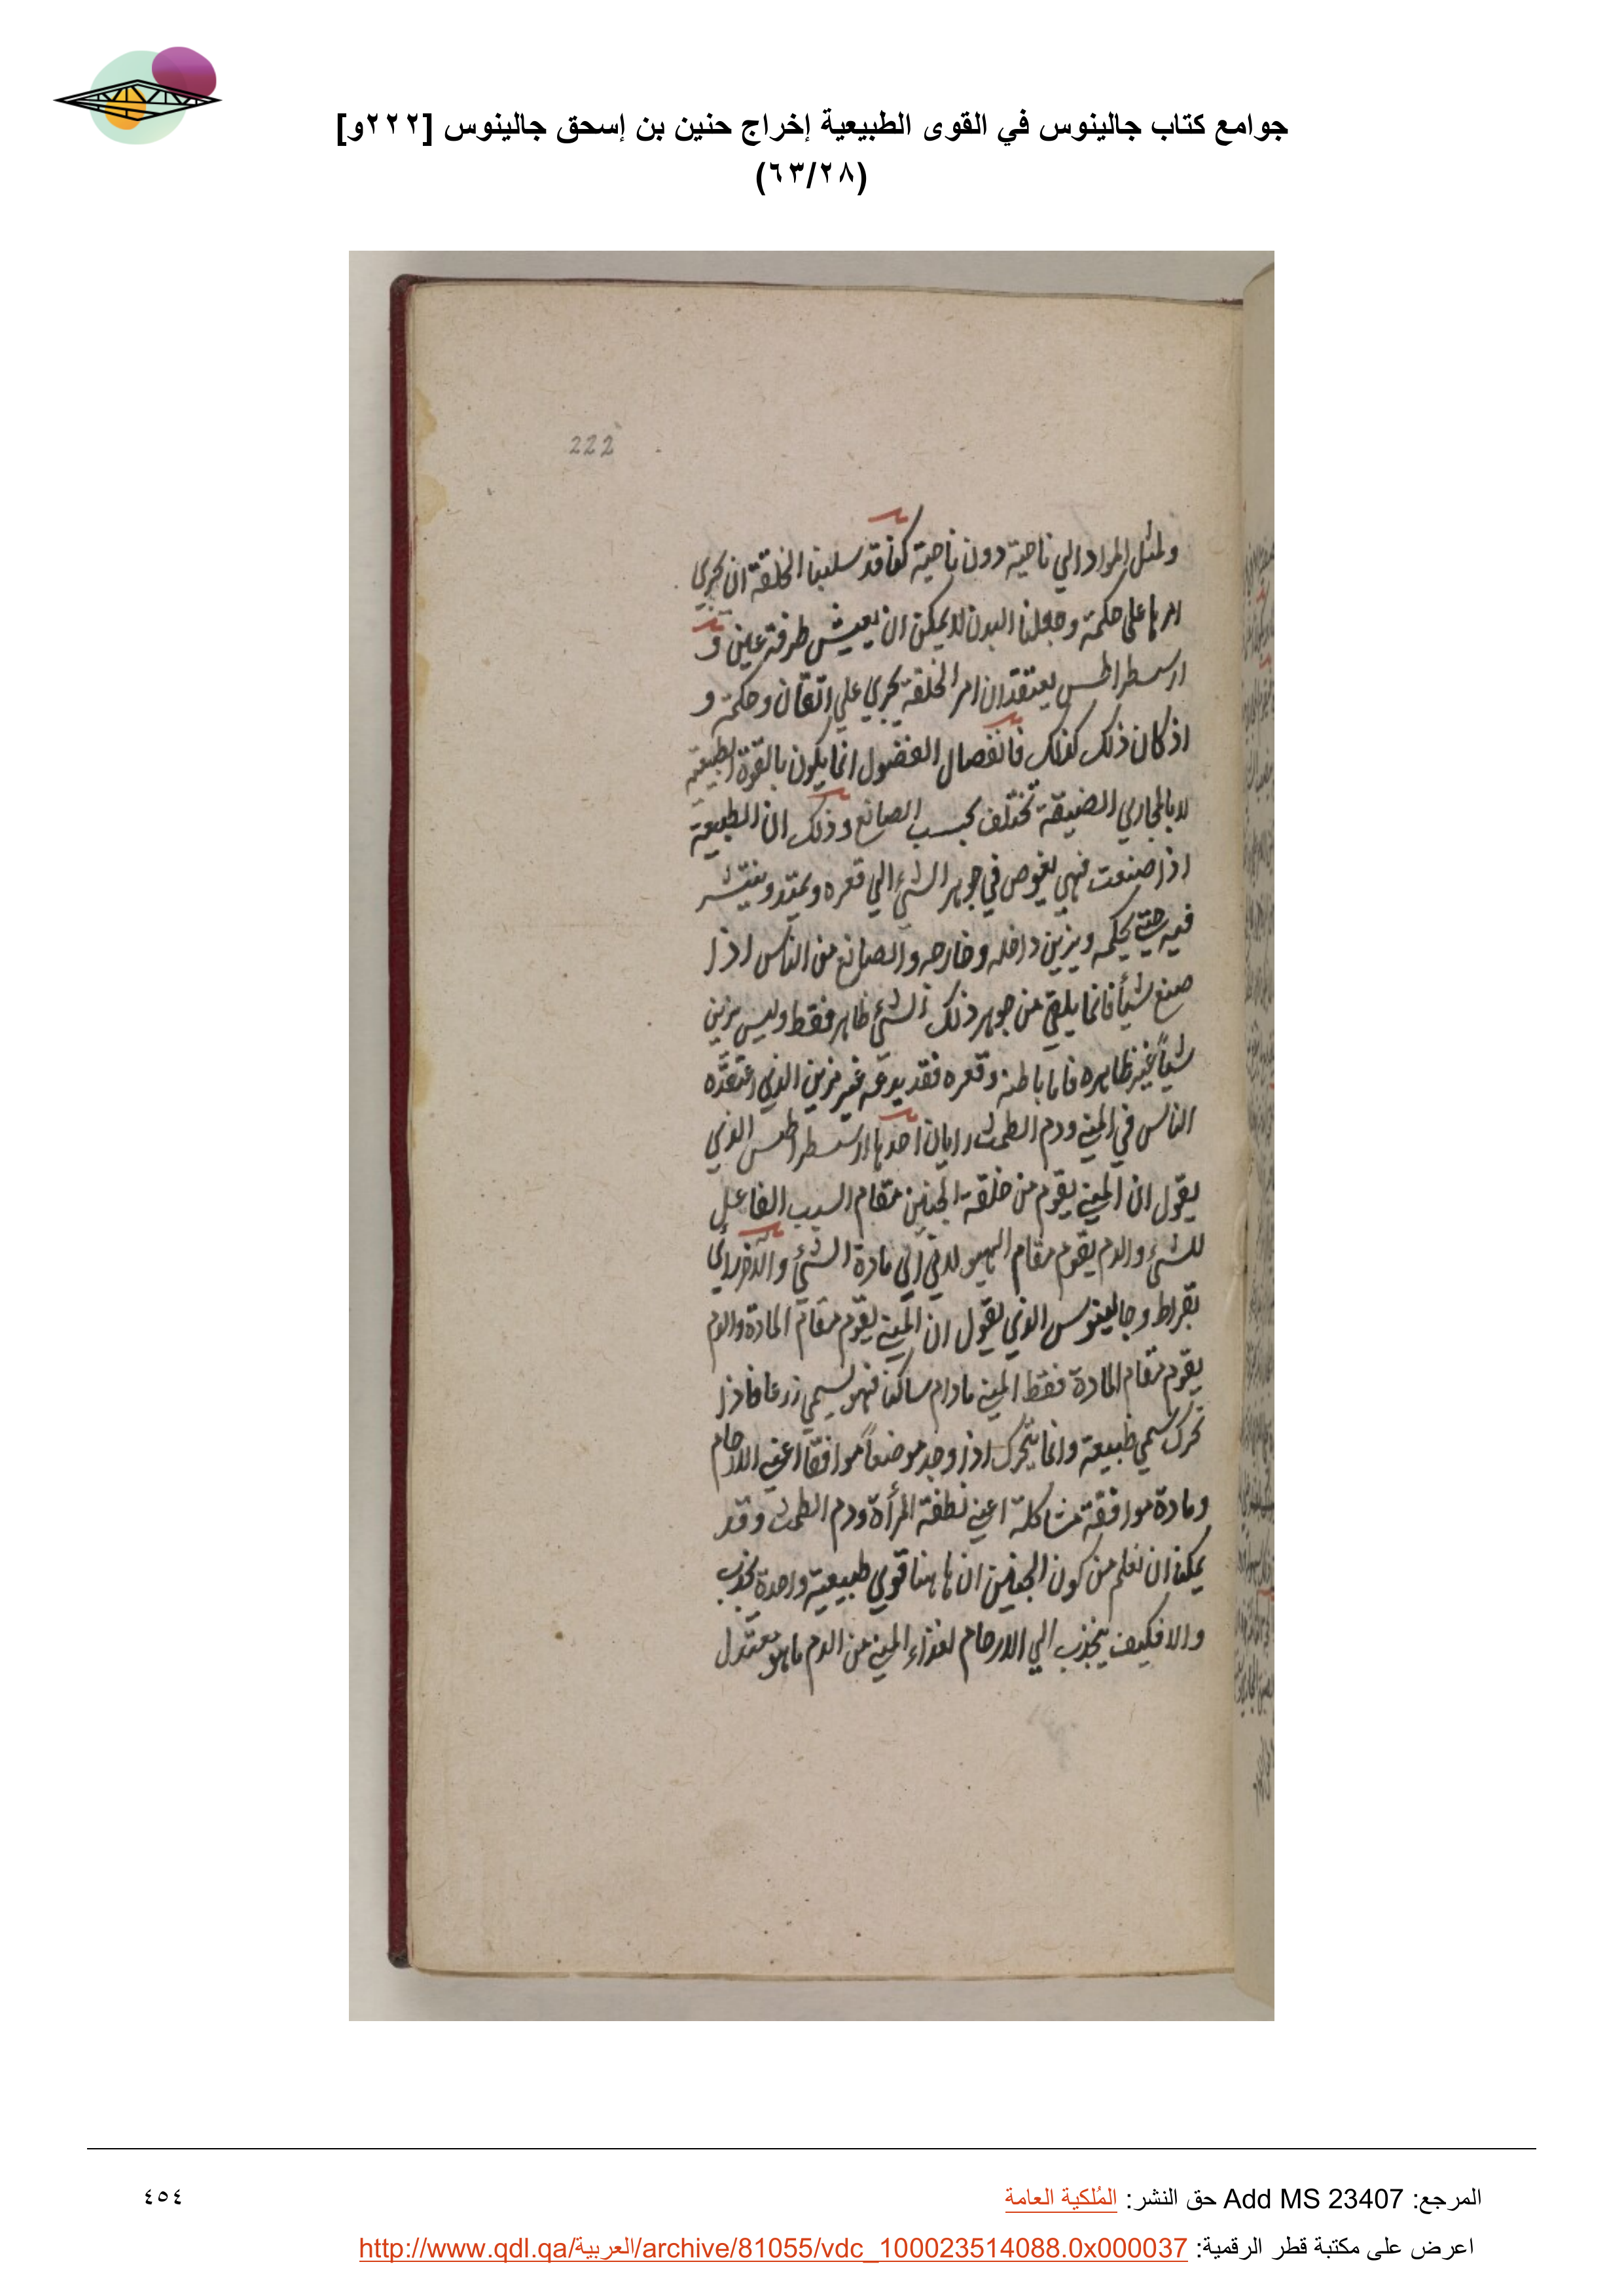 جوامع كتاب جالينوس في القوى الطبيعية إخراج حنين بن إسحق جالينوس [٢٢٢و]
(٦٣/٢٨)
222
ولمثل المواد الي ناحية دون ناحية كنا قد سلبنا الخلقة ان يجري
امرها علي حكمة وجعلنا البدن لا يمكن ان يعيش طرفة عين و
ارسسطراطس يعتقد ان امر الخلقة يجري علي اتقان وحكمة و
اذ كان ذلك كذلك فانفصال الفضول انما يكون بالقوة الطبيعية
لا بالمجاري الضيقة تختلف بحسب الصانع وذلك ان الطبيعة
اذا صنعت فهي يغوص في جوهر الشئ الي قعره ويمتد وينتشر
فيه حتي يحكمه ويزين داخله وخارجه والصانع من الناس اذا
صنع شيأ فانما يلقي من جوهر ذلك الشئ ظاهر فقط وليس يزين
شيأ غير ظاهره فاما باطنه وقعره فقد يدعه غير مزين الذي اعتقده
الناس في المني ودم الطمث رايان احدها ارسسطراطس الذي
يقول ان المني يقوم من خلقة الجنين مقام السبب الفاعل
للشئ والدم يقوم مقام الهيولاني اي مادة الشئ والآخر راي
بقراط وجالينوس الذي يقول ان المني يقوم مقام المادة والدم
يقوم مقام المادة فقط المني مادام ساكنا فهو يسمي زرعا فاذا
تحرك سمي طبيعة وانما يتحرك اذا وجد موضعاً موافقا اعني الارحام
ومادة موافقة مشاكلة اعني نطفة المرأة ودم الطمث وقد
يمكنا ان نعلم من كون الجنين ان هاهنا قوي طبيعية واحدة يجذب
والا فكيف ينجذب الي الارحام لغذاء المني من الدم ما هو معتدل
المرجع: Add MS 23407 حق النشر: المُلكية العامة
٤٥٤
اعرض على مكتبة قطر الرقمية: http://www.qdl.qa/العربية/archive/81055/vdc_100023514088.0x000037